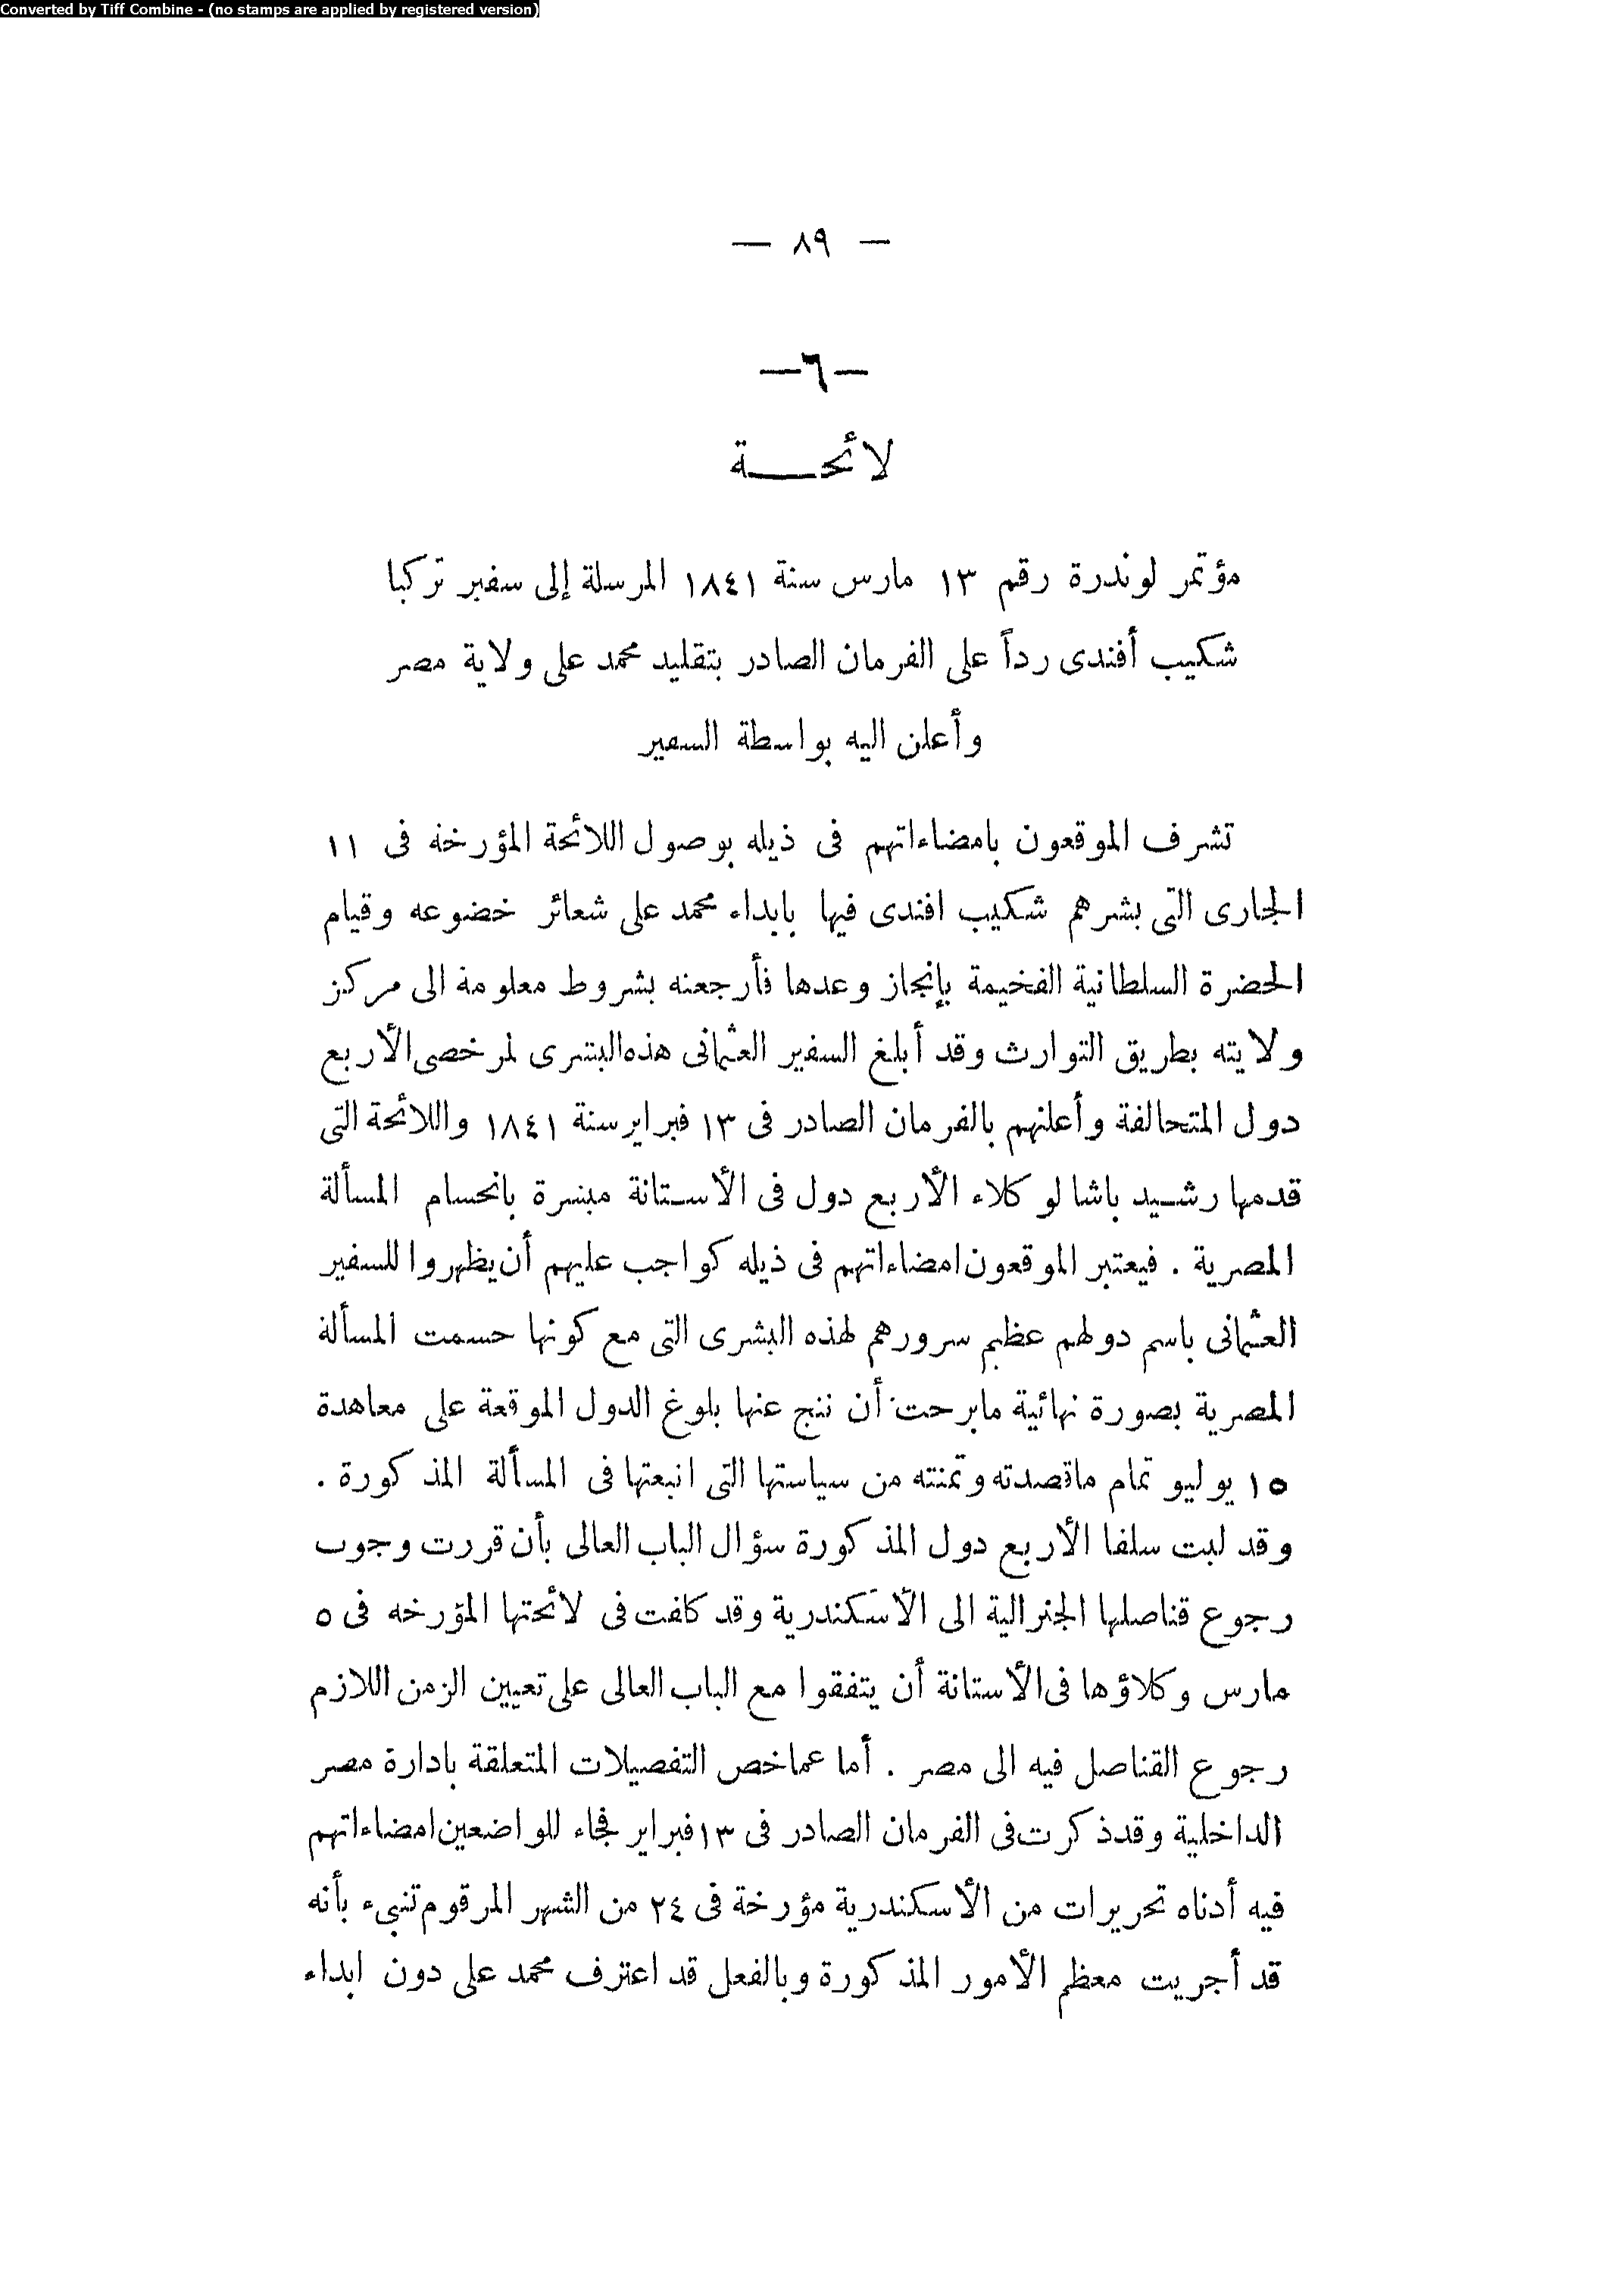 Converted by Tiff Combine - (no stamps are applied by registered version)
— ٨٩ —
—٦—
لائحـــة
مؤتمر لوندرة رقم ١٣ مارس سنة ١٨٤١ المرسلة إلى سفير تركيا
شكيب أفندى رداً على الفرمان الصادر بتقليد محمد على ولاية مصر
وأعلن اليه بواسطة السفير
تشرف الموقعون بامضاءاتهم فى ذيله بوصول اللائحة المؤرخة فى ١١
الجارى التى بشرهم شكيب افندى فيها بابداء محمد على شعائر خضوعه وقيام
الحضرة السلطانية الفخيمة بإنجاز وعدها فأرجعته بشروط معلومة الى مركز
ولايته بطريق التوارث وقد أبلغ السفير العثمانى هذه البشرى لمرخصى الأربع
دول المتحالفة وأعلنهم بالفرمان الصادر فى ١٣ فبراير سنة ١٨٤١ واللائحة التى
قدمها رشـيد باشا لوكلاء الأربع دول فى الأسـتانة مبشرة بانحسام المسألة
المصرية . فيعتبر الموقعون امضاءاتهم فى ذيله كواجب عليهم أن يظهروا للسفير
العثمانى باسم دولهم عظيم سرورهم لهذه البشرى التى مع كونها حسمت المسألة
المصرية بصورة نهائية مابرحت أن نتج عنها بلوغ الدول الموقعة على معاهدة
١٥ يوليو تمام ماقصدته وتمنته من سياستها التى اتبعتها فى المسألة المذكورة .
وقد لبت سلفا الأربع دول المذكورة سؤال الباب العالى بأن قررت وجوب
رجوع قناصلها الجنرالية الى الأسكندرية وقد كلفت فى لائحتها المؤرخه فى ٥
مارس وكلاؤها فى الأستانة أن يتفقوا مع الباب العالى على تعيين الزمن اللازم
رجوع القناصل فيه الى مصر . أما عماخص التفصيلات المتعلقة بادارة مصر
الداخلية وقدذكرت فى الفرمان الصادر فى ١٣ فبراير فجاء للواضعين امضاءاتهم
فيه أدناه تحريرات من الأسكندرية مؤرخة فى ٢٤ من الشهر المرقوم تنبىء بأنه
قد أجريت معظم الأمور المذكورة وبالفعل قد اعترف محمد على دون ابداء